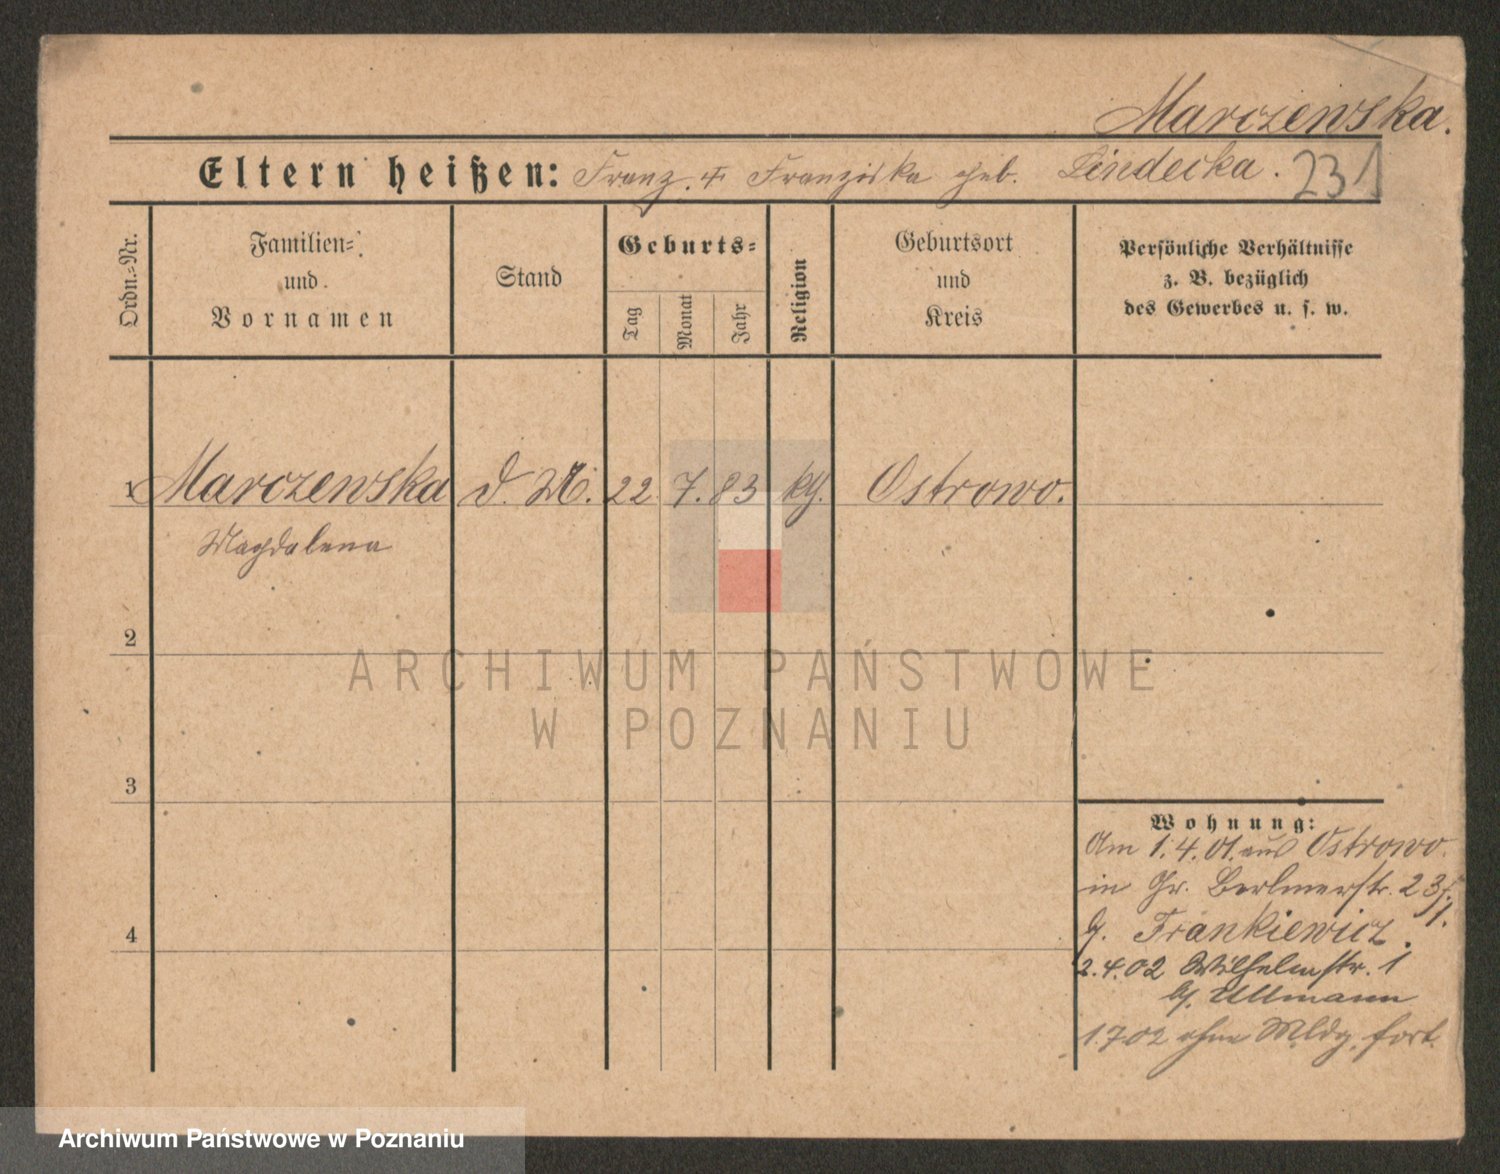 Marczewska.
Eltern heißen: Franz. + Franziska geb. Lindecka. 231
Ordn.=Nr.
Familien=
und
Vornamen
Stand
Geburts=
Tag
Monat
Jahr
Religion
Geburtsort
und
Kreis
Persönliche Verhältnisse
z. B. bezüglich
des Gewerbes u. s. w.
1 Marczewska d. M. 22 7. 83 kth. Ostrowo.
Magdalena
2
ARCHIWUM PAŃSTWOWE
W POZNANIU
3
4
Wohnung:
Am 1.4.01. aus Ostrowo.
in Gr. Berlinerstr. 23
b. Frankiewicz.
2.4.02 Wilhelmstr. 1
b. Ullmann
1.7.02 ohne Mldg. fort.
Archiwum Państwowe w Poznaniu